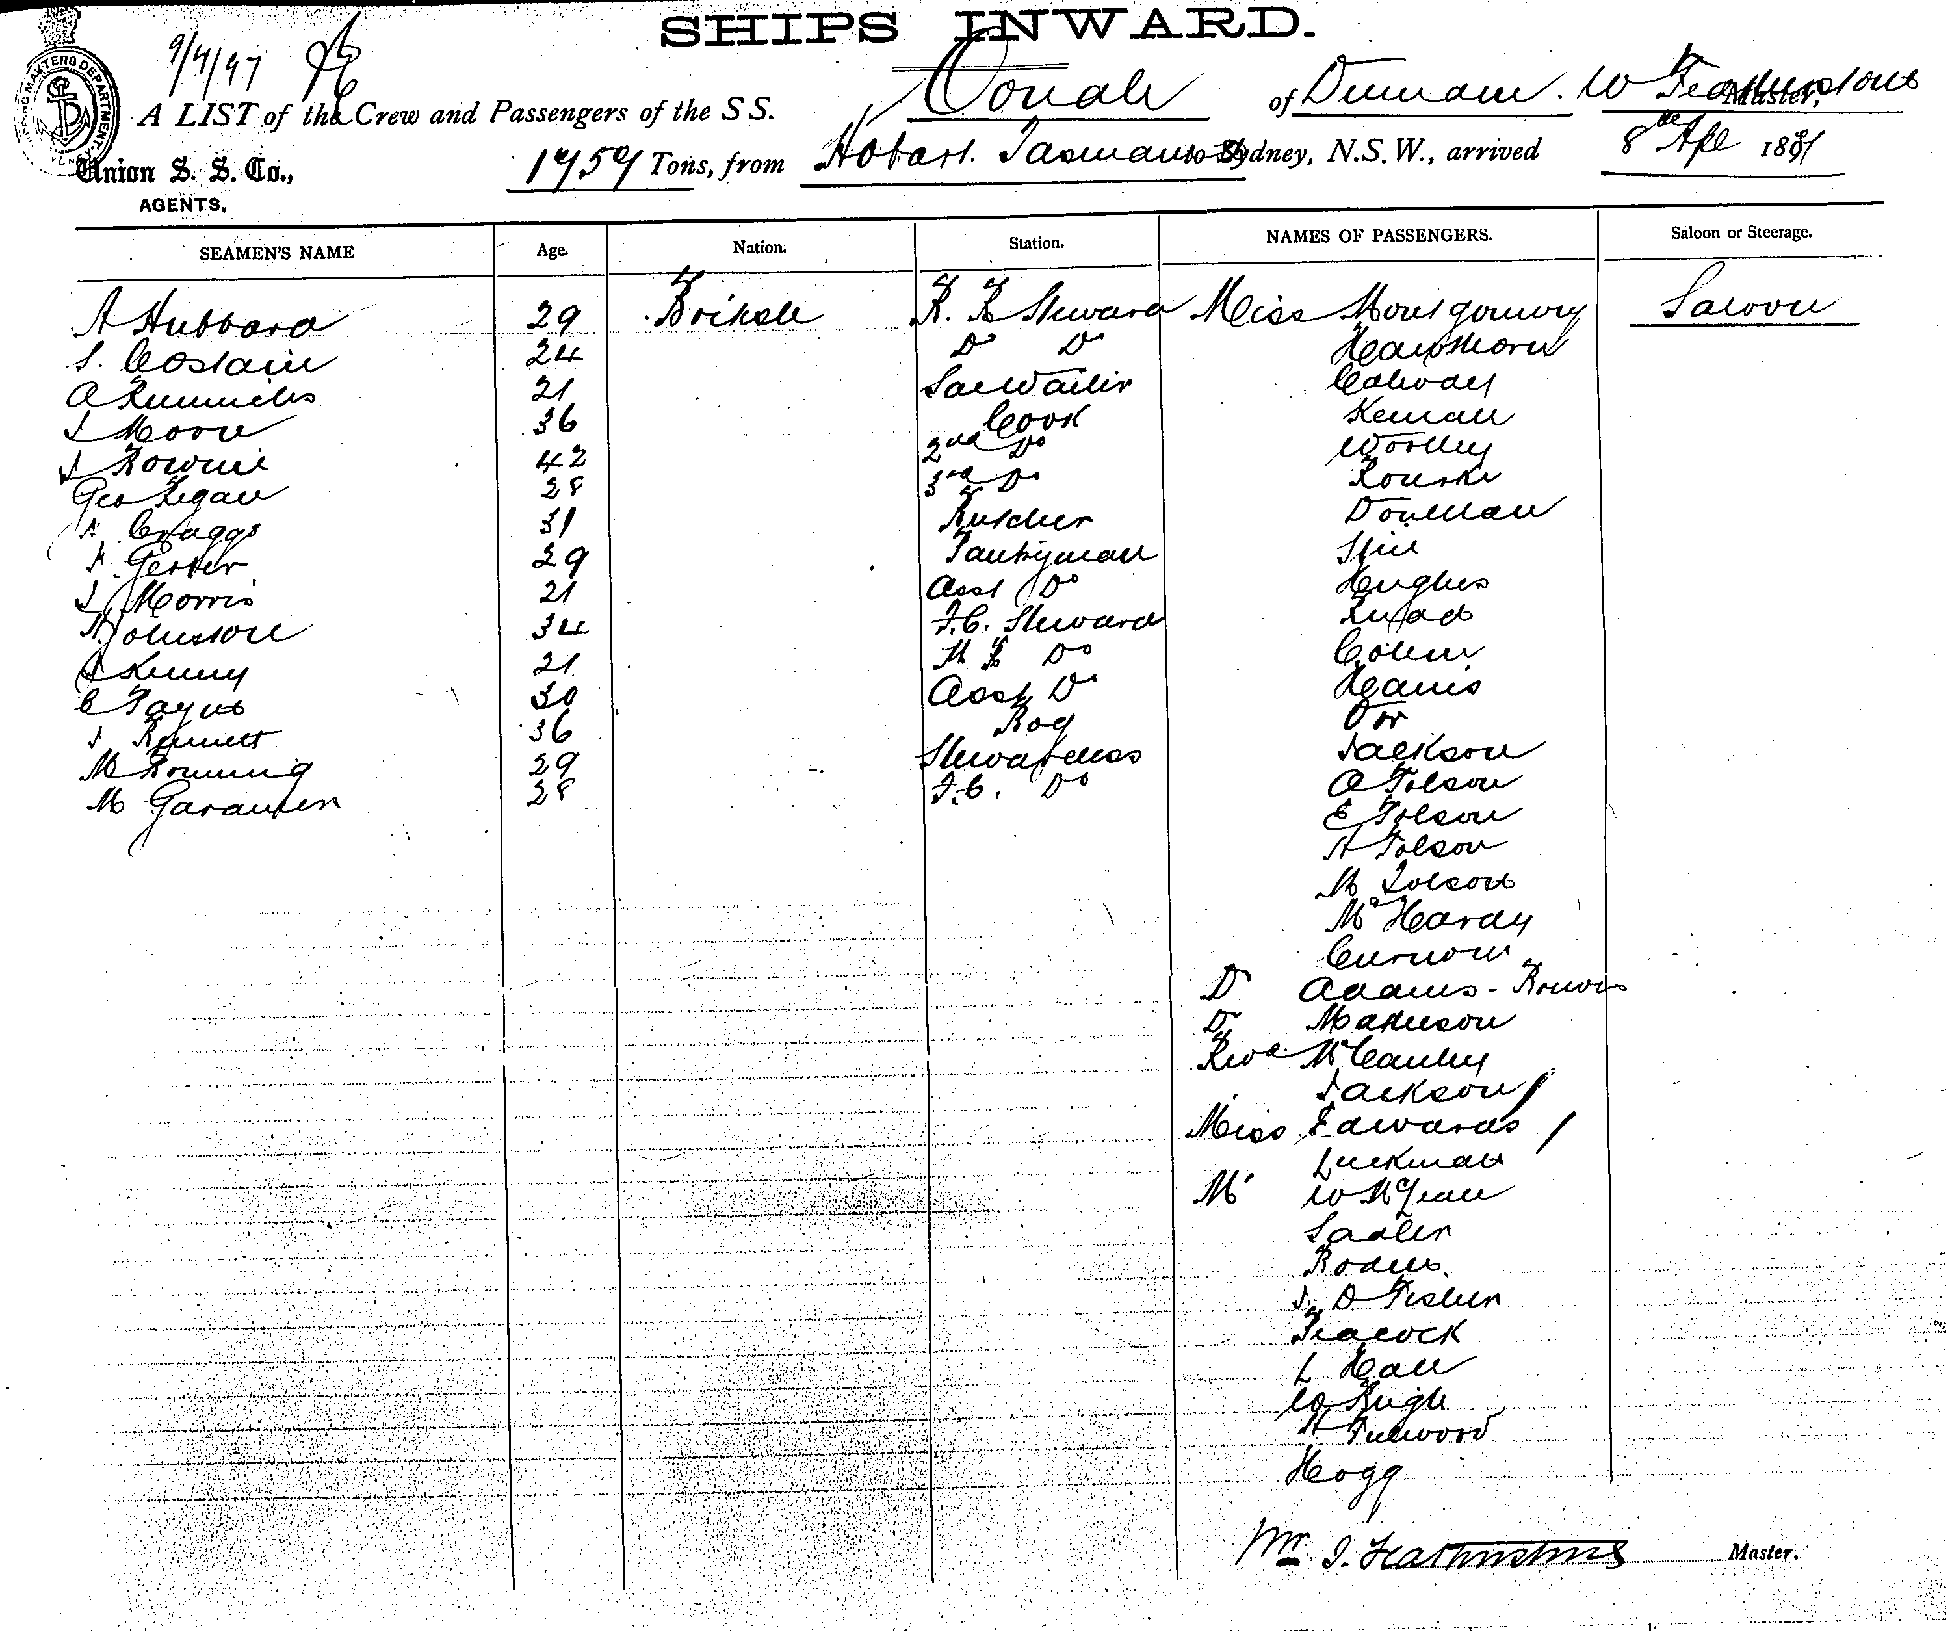 SHIPS INWARD.
9/4/97
A LIST of the Crew and Passengers of the S S. Oonah of Dunedin. W Featherstone Master,
Union S. S. Co., 1757 Tons, from Hobart. Tasmania to Sydney, N.S.W., arrived 8th Apl 1897
AGENTS.
SEAMEN'S NAME Age. Nation. Station. NAMES OF PASSENGERS. Saloon or Steerage.
A Hubbard 29 British B. R. Steward Miss Montgomery Saloon
S. Costain 24 Do Do Hawthorn
A 21 Sal Waiter Calway
J Moore 36 Cook Kenian
J Rownie 42 2nd Do Woolley
Geo Regan 28 3rd Do Rourke
A Craggs 31 Butcher Donellan
A Gerber 29 Pantryman
J Morris 21 Asst Do Hughes
A Johnston 34 F.C. Steward
J Kenny 21 Do Cohen
C Payne 30 Asst Do
J Bennett 36 Boy Orr
M 29 Stewardess Jackson
M 28 F.C. Do A Tolson
E Tolson
A Tolson
M Tolson
Mc Hardy
Curnow
Dr Adams -
Dr Matheson
Revd McCauley
Jackson
Miss Edwards
Luckman
Mr W McLean
Sadler
J. D Fisher
Peacock
L Hall
W Pugh
A Fulwood
Hogg
Wm J. Featherstone Master.